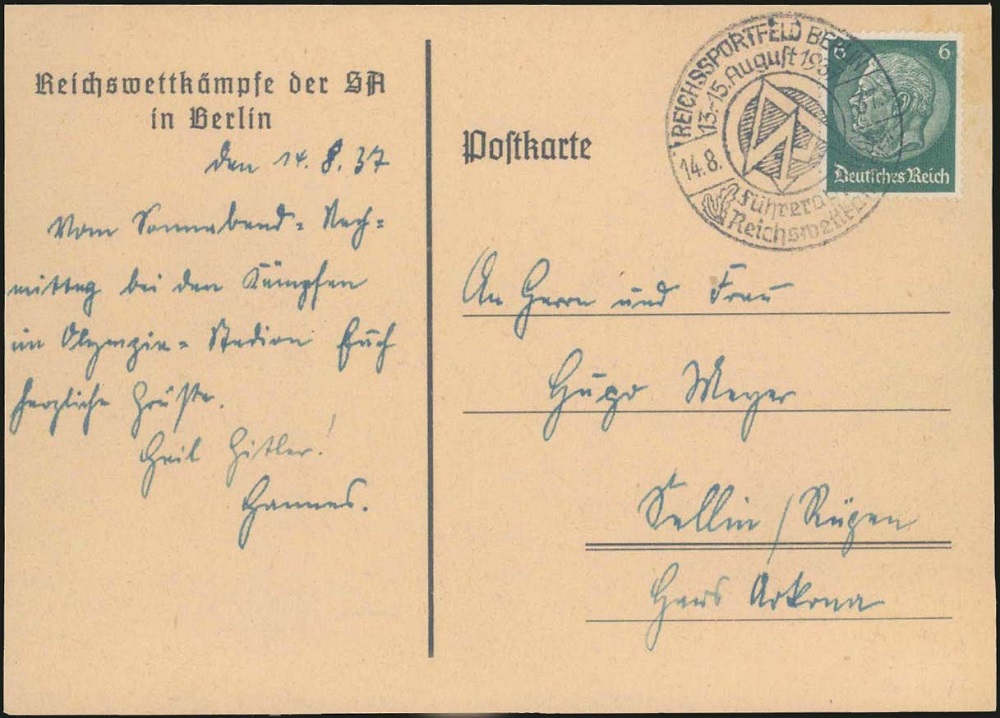 Reichswettkämpfe der SA
in Berlin
den 14. 8. 37
Vom Sonnabend-Nach-
mittag bei den Kämpfen
im Olympia-Stadion Euch
herzliche Grüße.
Heil Hitler!
Hannes.
Postkarte
REICHSSPORTFELD BERLIN
13.-15. August 193
14.8.
Führer
Reichswettkä
6 6
Deutsches Reich
An Herrn und Frau
Hugo Meyer
Sellin / Rügen
Haus Arkona